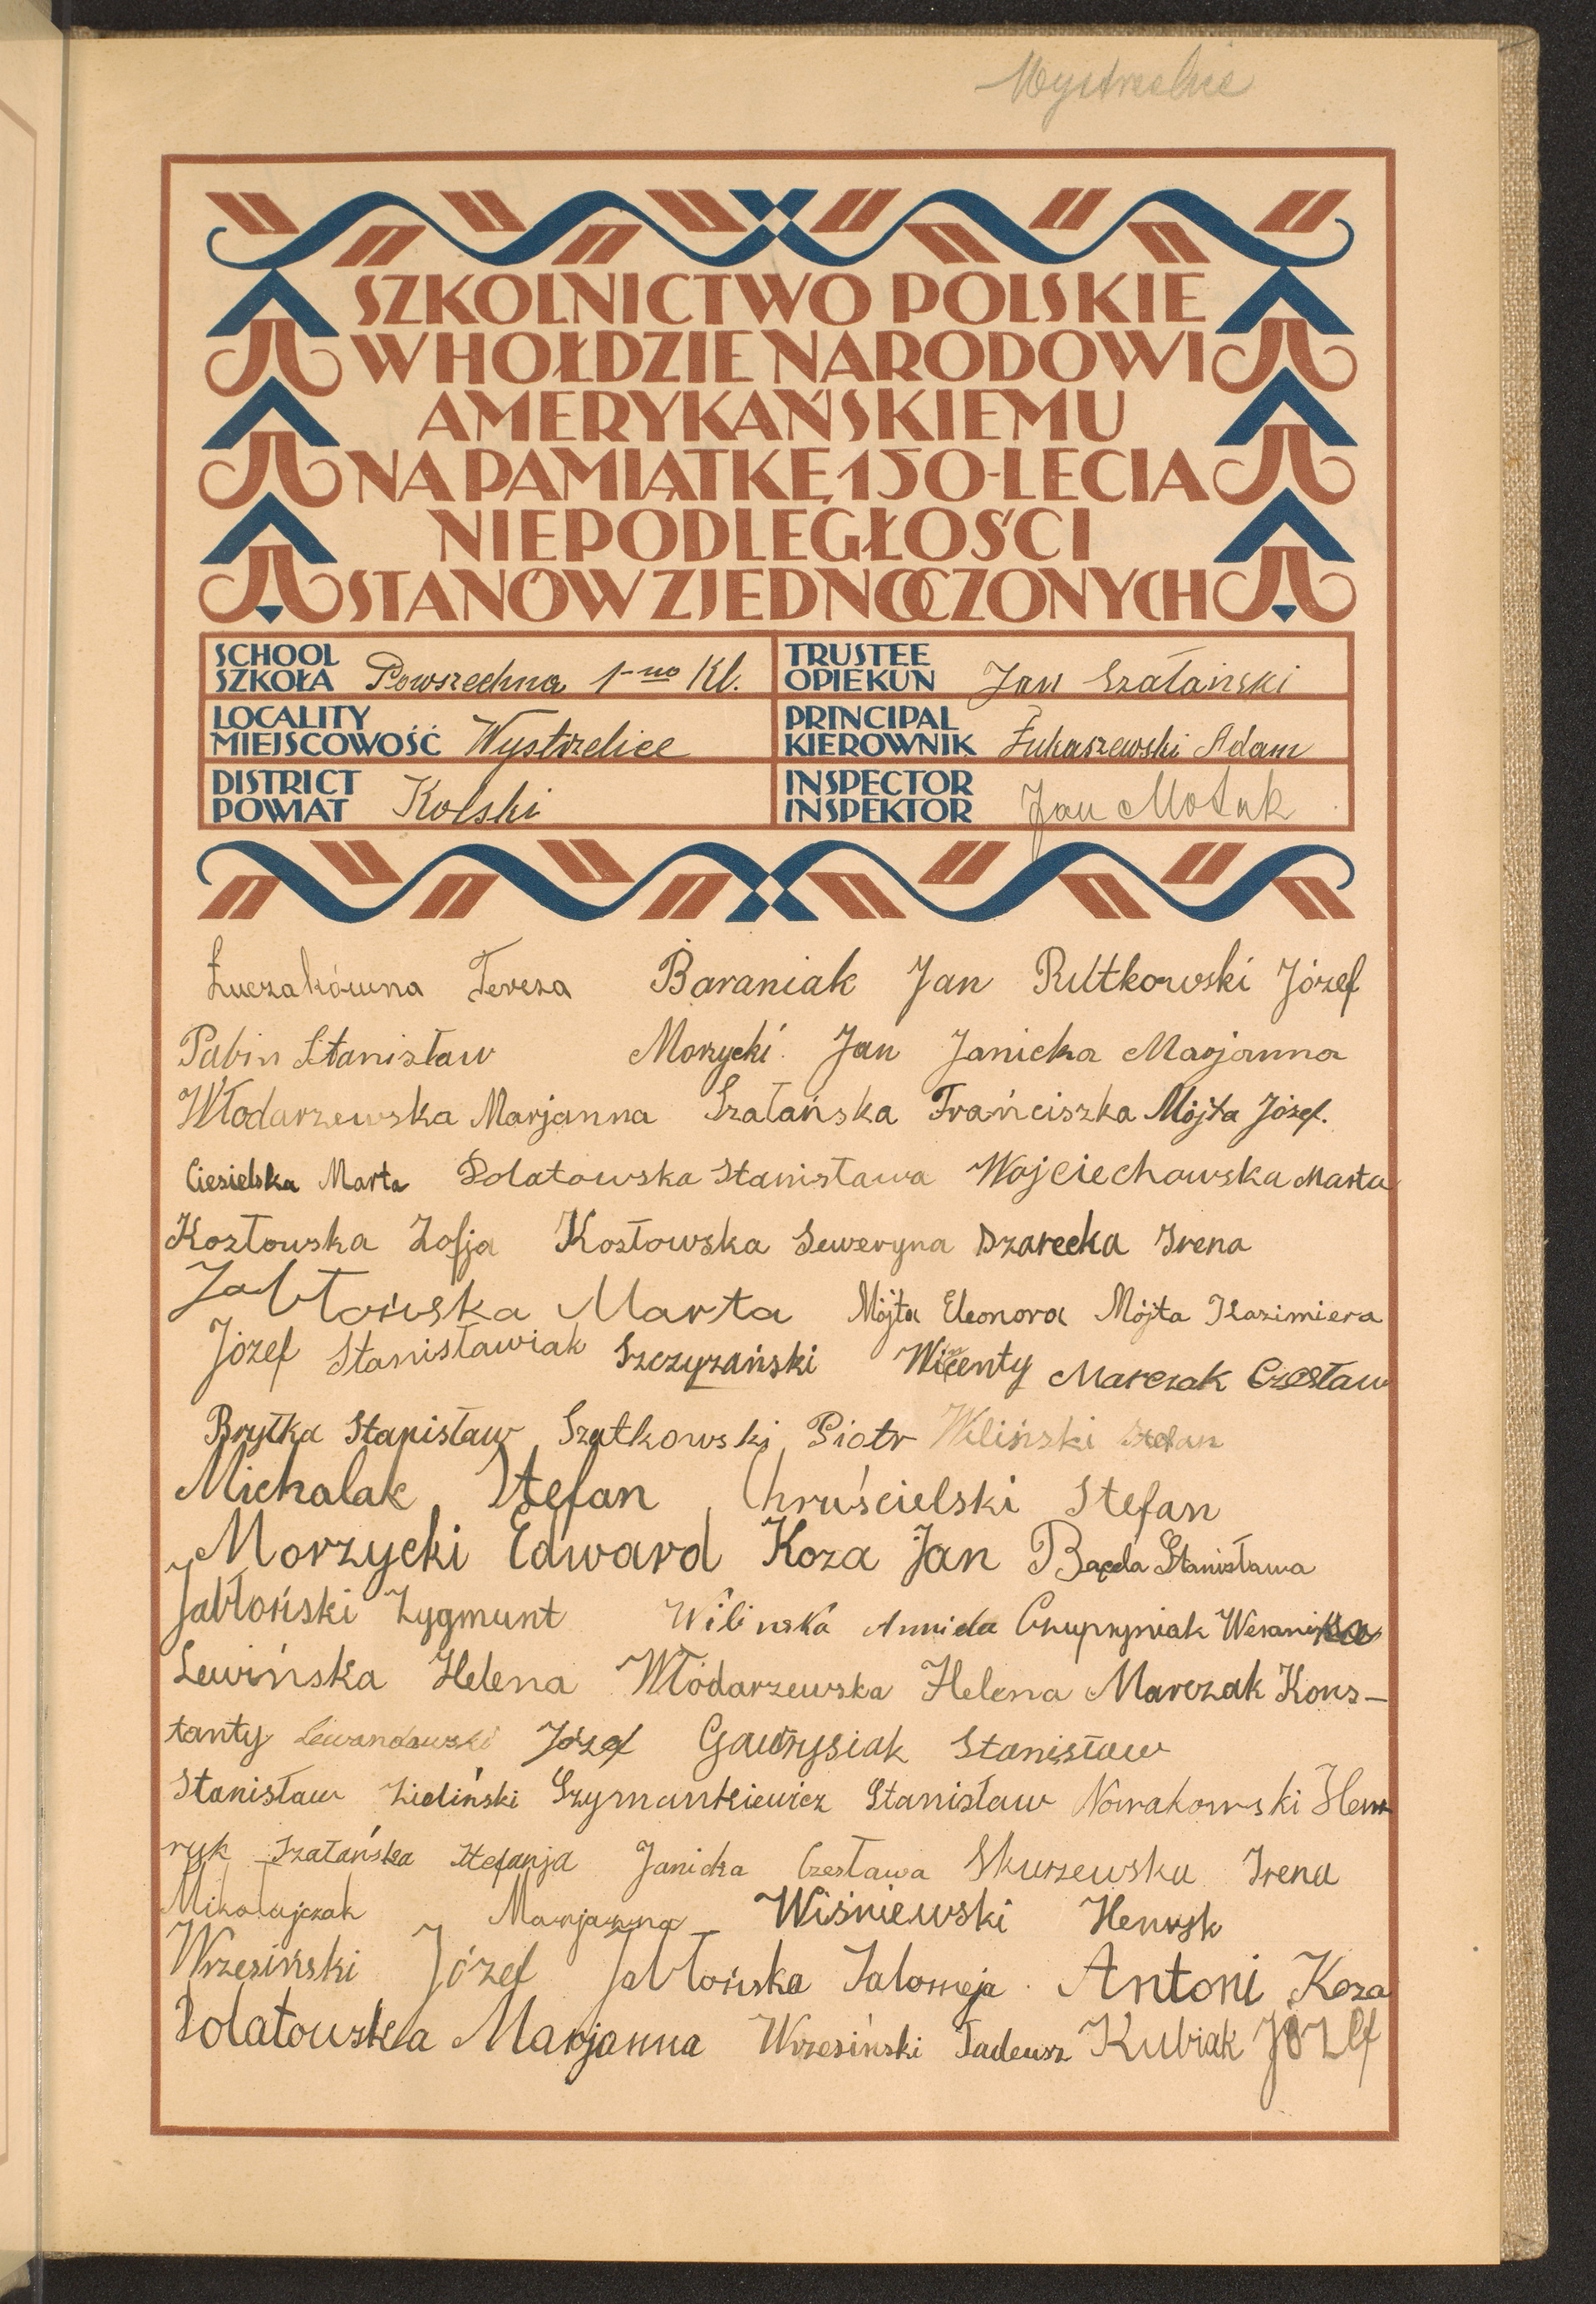 SZKOLNICTWO POLSKIE
W HOŁDZIE NARODOWI
AMERYKAŃSKIEMU
NA PAMIĄTKĘ 150-LECIA
NIEPODLEGŁOŚCI
STANÓW ZJEDNOCZONYCH
SCHOOL
SZKOŁA Powszechna 1-no Kl.
TRUSTEE
OPIEKUN Jan Szałański
LOCALITY
MIEJSCOWOŚĆ Wystrzelice
PRINCIPAL
KIEROWNIK Łukaszewski Adam
DISTRICT
POWIAT Kolski
INSPECTOR
INSPEKTOR Jan
Łuczakówna Teresa Baraniak Jan Rutkowski Józef
Pabin Stanisław Morzycki Jan Janicka Marjanna
Włodarzewska Marjanna Szałańska Frańciszka Mójta Józef.
Ciesielska Marta Polatowska Stanisława Wojciechowska Marta
Kozłowska Zofja Kosłowska Seweryna Dzarecka Irena
Jabłońska Marta Mójta Eleonora Mójta Kazimiera
Józef Stanisławiak Szczyzański Wicenty Marczak Czesław
Bryłka Stanisław Szatkowski Piotr Wiliński
Michalak Stefan Chruścielski Stefan
Morzycki Edward Koza Jan Bagda Stanisława
Jabłoński Zygmunt Wilinska Czupryniak Weranika
Lewińska Helena Włodarzewska Helena Marczak Kons-
tanty Lewandowski Józef Gawrysiak Stanisław
Stanisław Zieliński Szymankiewicz Stanisław Nowakowski Hen
ryk Szałańska Stefanja Janicka Czesława Skurzewska Irena
Mikołajczak Marjanna Wiśniewski Henryk
Wrzesiński Józef Jabłońska Salomeja Antoni Koza
Polatowska Marjanna Wrzesiński Tadeusz Kubiak Józef